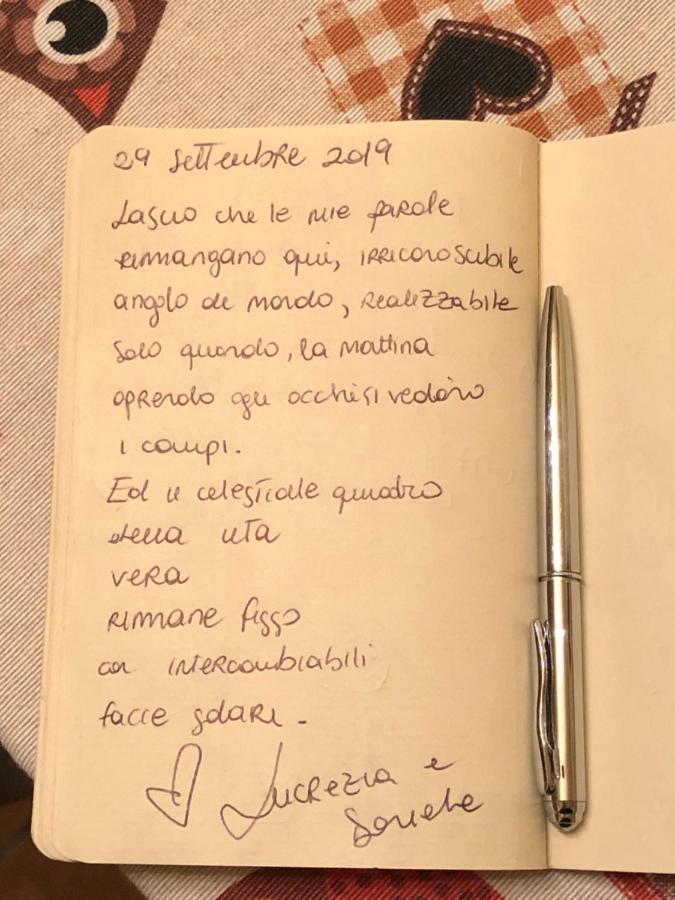 29 settembre 2019
Lascio che le mie parole
rimangano qui, irriconoscibile
angolo di mondo, realizzabile
solo quando, la mattina
aprendo gli occhi si vedono
i campi.
Ed il celestiale quadro
della vita
vera
rimane fisso
con intercambiabili
facce solari.
Lucrezia e